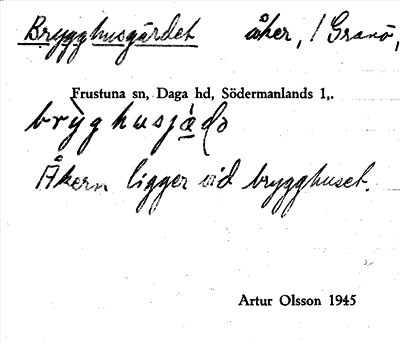 Brygghusgärdet åker, / Granö,
Frustuna sn, Daga hd, Södermanlands l.
bryghusjädə
Åkern ligger vid brygghuset.
Artur Olsson 1945